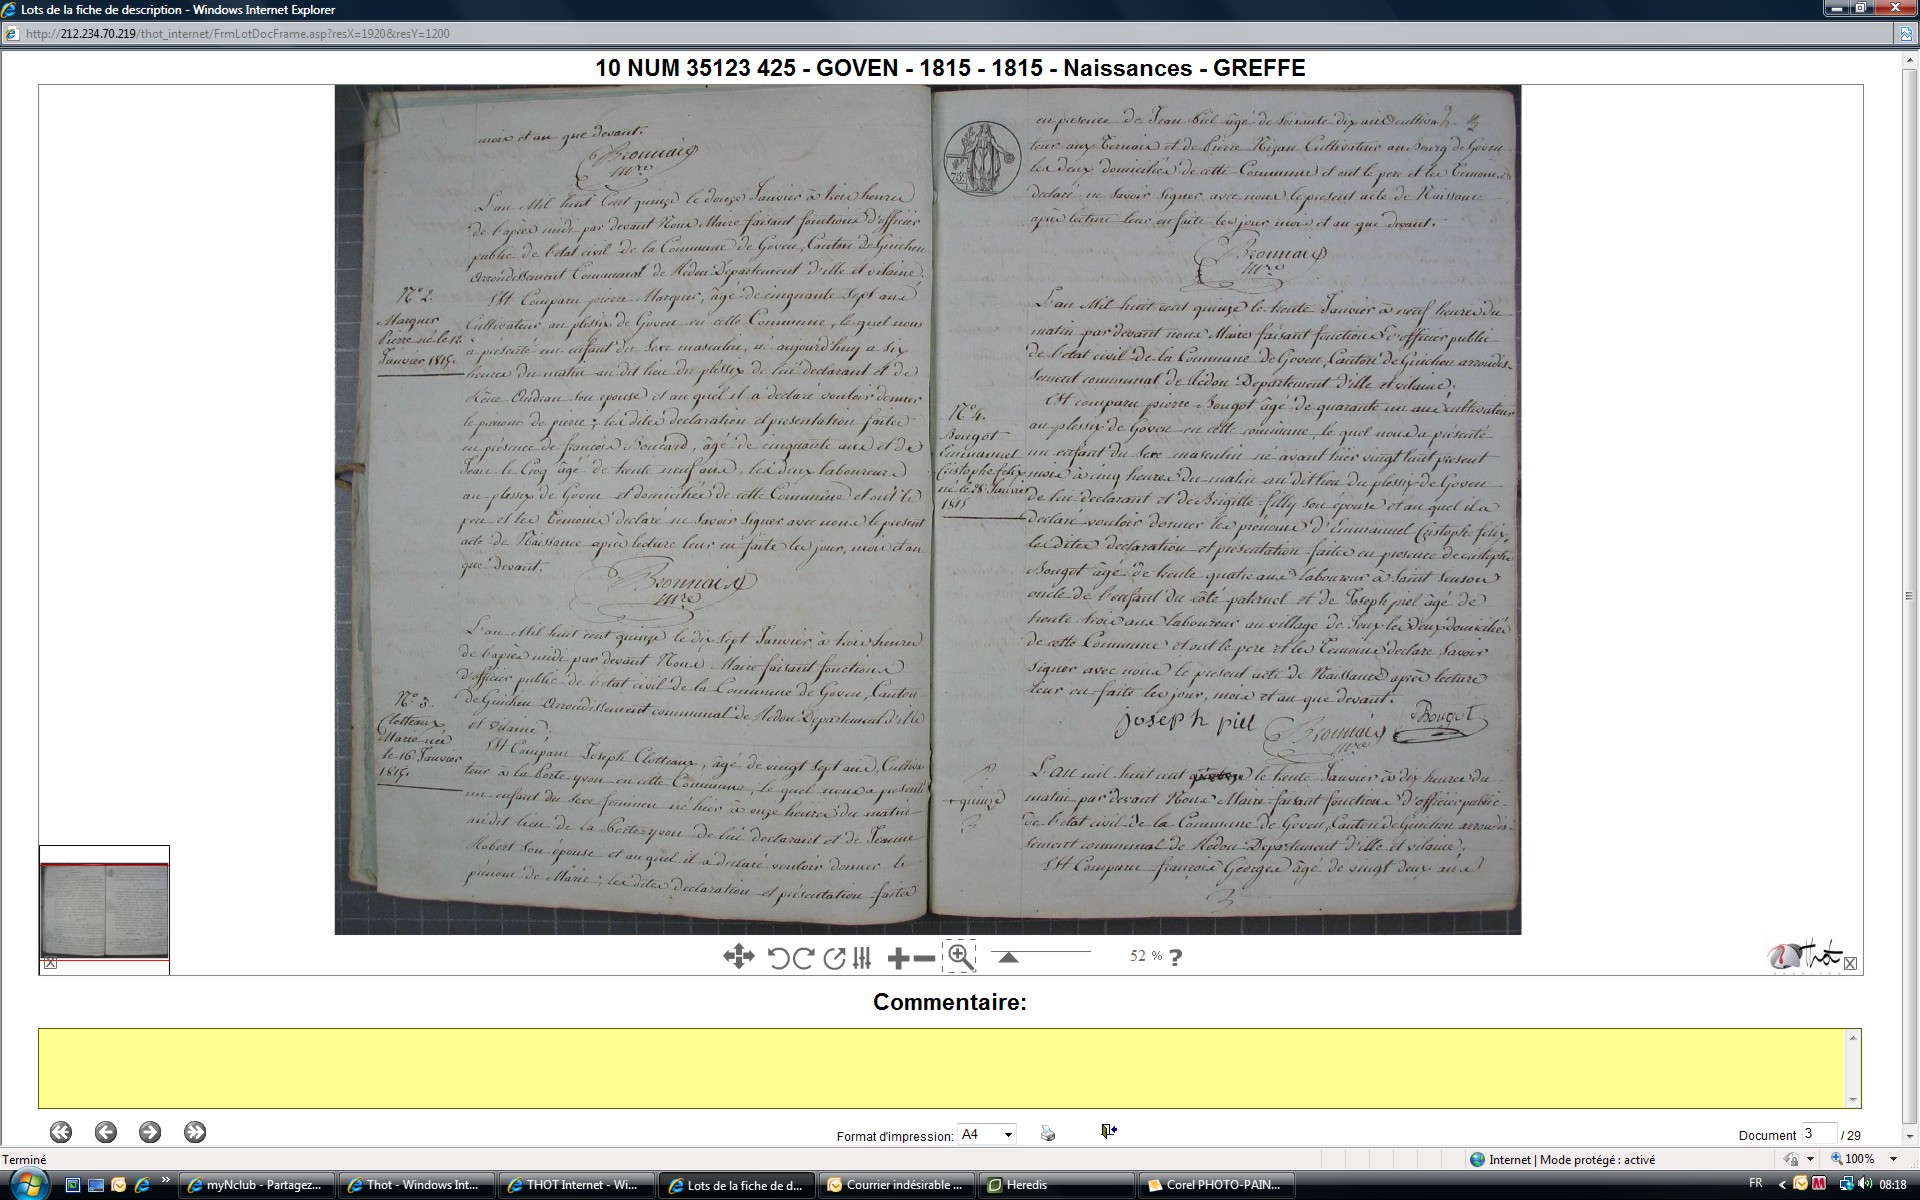 Lots de la fiche de description - Windows Internet Explorer
http://212.234.70.219/thot_internet/FrmLotDocFrame.asp?resX=1920&resY=1200
10 NUM 35123 425 - GOVEN - 1815 - 1815 - Naissances - GREFFE
mois et an que devant.
Bronnais
mre
L'an Mil huit Cent quinze le douze Janvier à trois heures
de l'après midi par devant Nous Maire faisant fonctions d'officier
public de l'etat civil de la Commune de Goven, Canton de Guichen
Arrondissement Communal de Redon Departement d'ille et vilaine.
N° 2.
Marquer
Pierre né le 12
Janvier 1815.
Est Comparu pierre Marquer, âgé de cinquante sept ans
Cultivateur au plessix de Goven en cette Commune, le quel nous
a présenté un enfant du Sexe masculin, né aujourd'huy a six
heures du matin au dit lieu du plessix de lui declarant et de
son épouse et au quel il a declaré vouloir donner
le prénom de pierre ; les dites declaration et presentation faites
en présence de françois Boucard, âgé de cinquante ans et de
Jean le Coq âgé de trente neuf ans, les deux laboureurs
au plessix de Goven et domiciliés de cette Commune et ont le
pere et les Temoins declaré ne Savoir Signer avec nous le present
acte de Naissance après lecture leur en faite les jour, mois et an
que devant.
Bronnais
mre
L'an Mil huit cent quinze le dix Sept Janvier à trois heures
de l'après midi par devant Nous Maire faisant fonctions
d'officier public de l'etat civil de la Commune de Goven, Canton
de Guichen Arrondissement communal de Redon Departement d'ille
et vilaine.
N° 3.
Clotteaux
Marie née
le 16 Janvier
1815.
Est Comparu Joseph Clotteaux, âgé de vingt sept ans, Cultiva
teur à la porte yvon en cette Commune, le quel nous a presenté
un enfant du Sexe feminin né hier à onze heures du matin
au dit lieu de la porte yvon de lui declarant et de Jeanne
Robert Son épouse et au quel il a declaré vouloir donner le
prénom de Marie ; les dites declaration et présentation faites
en presence de Jean piel âgé de Soixante dix ans cultiva
teur aux Ternais et de Pierre Nizan Cultivateur au Bourg de Goven
les deux domiciliés de cette Commune et ont le pere et les Temoins
declaré ne Savoir Signer avec nous le present acte de Naissance
après lecture leur en faite les jour mois et an que devant.
Bronnais
mre
L'an Mil huit cent quinze le trente Janvier à neuf heures du
matin par devant nous Maire faisant fonctions d'officier public
de l'etat civil de la Commune de Goven, Canton de Guichen arrondis-
sement communal de Redon Departement d'ille et vilaine.
N° 4.
Bougot
Emmanuel
Cristophe felix
né le 28 Janvier
1815
Est comparu pierre Bougot âgé de quarante un ans cultivateur
au plessix de Goven en cette commune, le quel nous a présenté
un enfant du Sexe masculin né avant hier vingt huit present
mois à cinq heures du matin au dit lieu du plessix de Goven
de lui declarant et de Brigitte filly son épouse et au quel il a
declaré vouloir donner les prénoms d'Emmanuel Cristophe felix,
les dites declaration et presentation faites en presence de cristophe
Bougot âgé de trente quatre ans laboureur à Saint Senson
oncle de l'enfant du côté paternel et de Joseph piel âgé de
trente trois ans laboureur au village de les deux domiciliés
de cette Commune et ont le pere et les Temoins declaré Savoir
Signer avec nous le present acte de Naissance après lecture
leur en faite les jour, mois et an que devant.
joseph piel
Bronnais
mre
Bougot
L'an mil huit cent le trente Janvier à dix heures du
+ quinze
matin par devant Nous Maire faisant fonctions d'officier public
de l'etat civil de la Commune de Goven, Canton de Guichen arrondis-
sement communal de Redon Departement d'ille et vilaine.
Est Comparu françois Georges âgé de vingt deux ans
52 % ?
Thot
Commentaire:
Format d'impression: A4
Document 3 / 29
Terminé
Internet | Mode protégé : activé
100%
myNclub - Partagez...
Thot - Windows Int...
THOT Internet - Wi...
Lots de la fiche de d...
Courrier indésirable ...
Heredis
Corel PHOTO-PAIN...
FR
08:18